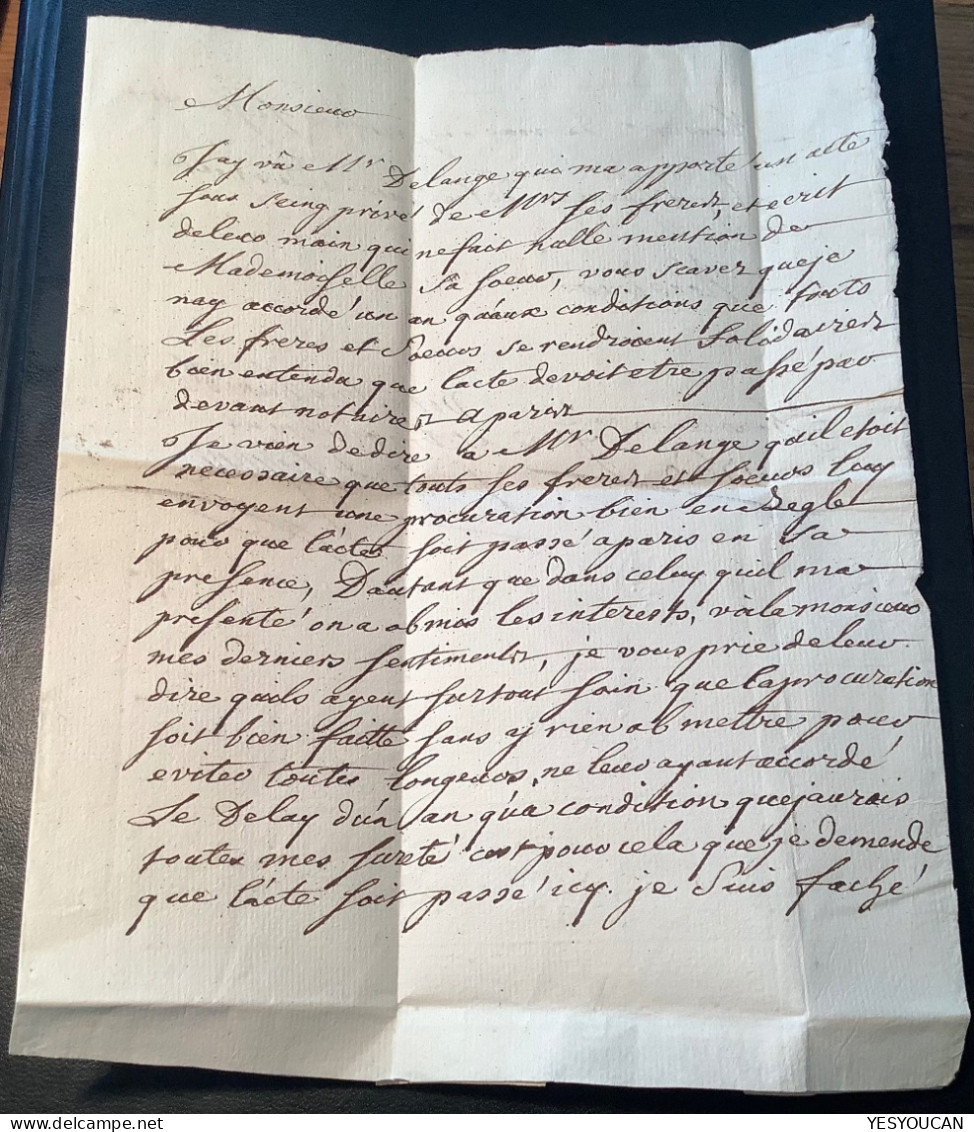 Monsieur
Jay vû Mr Delange qui ma apporté un acte
sous seing privé de Mrs ses freres, et ecrit
deleur main qui nefait nulle mention de
Mademoiselle Sa soeur, vous scavez queje
nay accordé un an quaux conditions que touts
Les freres et Soeurs se rendroient Solidaires
bien entendu que lacte devoit etre passé par
devant notaires a paris
Je vien dedire a Mr Delange quil etoit
necessaire que touts ses freres et soeurs luy
envoyent une procuration bien en Regle
pour que lacte soit passé a paris en sa
presence, Dautant que dans celuy quil ma
presenté on a obmis les interests, voila monsieur
mes derniers sentiments, je vous prie deleur
dire quils ayent surtout soin que laprocuration
soit bien faitte sans y rien obmettre pour
eviter toutes longeurs, ne leur ayant accordé
Le Delay d'un an qu'a condition quejaurois
toutes mes sureté cest pour cela que je demende
que lacte soit passé icy. je suis faché
YESYOUCAN